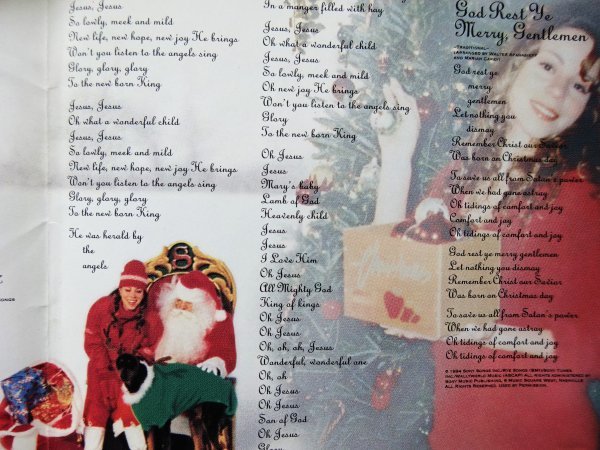 Jesus, Jesus
So lowly, meek and mild
New life, new hope, new joy He brings
Won't you listen to the angels sing
Glory, glory, glory
To the new born King
Jesus, Jesus
Oh what a wonderful child
Jesus, Jesus
So lowly, meek and mild
New life, new hope, new joy He brings
Won't you listen to the angels sing
Glory, glory, glory
To the new born King
He was herald by
the
angels
In a manger filled with hay
Jesus, Jesus
Oh what a wonderful child
Jesus, Jesus
So lowly, meek and mild
Oh new joy He brings
Won't you listen to the angels sing
Glory
To the new born King
Oh Jesus
Jesus
Mary's baby
Lamb of God
Heavenly child
Jesus
Jesus
I Love Him
Oh Jesus
All Mighty God
King of kings
Oh Jesus
Oh Jesus
Oh, oh, oh, Jesus
Wonderful, wonderful one
Oh, oh
Oh Jesus
Oh Jesus
Son of God
Oh Jesus
Glory
God Rest Ye
Merry, Gentlemen
-Traditional-
(Arranged by Walter Afanasieff
and Mariah Carey)
God rest ye
merry
gentlemen
Let nothing you
dismay
Remember Christ our Savior
Was born on Christmas day
To save us all from Satan's power
When we had gone astray
Oh tidings of comfort and joy
Comfort and joy
Oh tidings of comfort and joy
God rest ye merry gentlemen
Let nothing you dismay
Remember Christ our Savior
Was born on Christmas day
To save us all from Satan's power
When we had gone astray
Oh tidings of comfort and joy
Oh tidings of comfort and joy
© 1994 Sony Songs Inc./Rye Songs (BMI)/Sony Tunes
Inc./Wallyworld Music (ASCAP) All rights administered by
Sony Music Publishing, 8 Music Square West, Nashville
All Rights Reserved. Used by Permission.
S